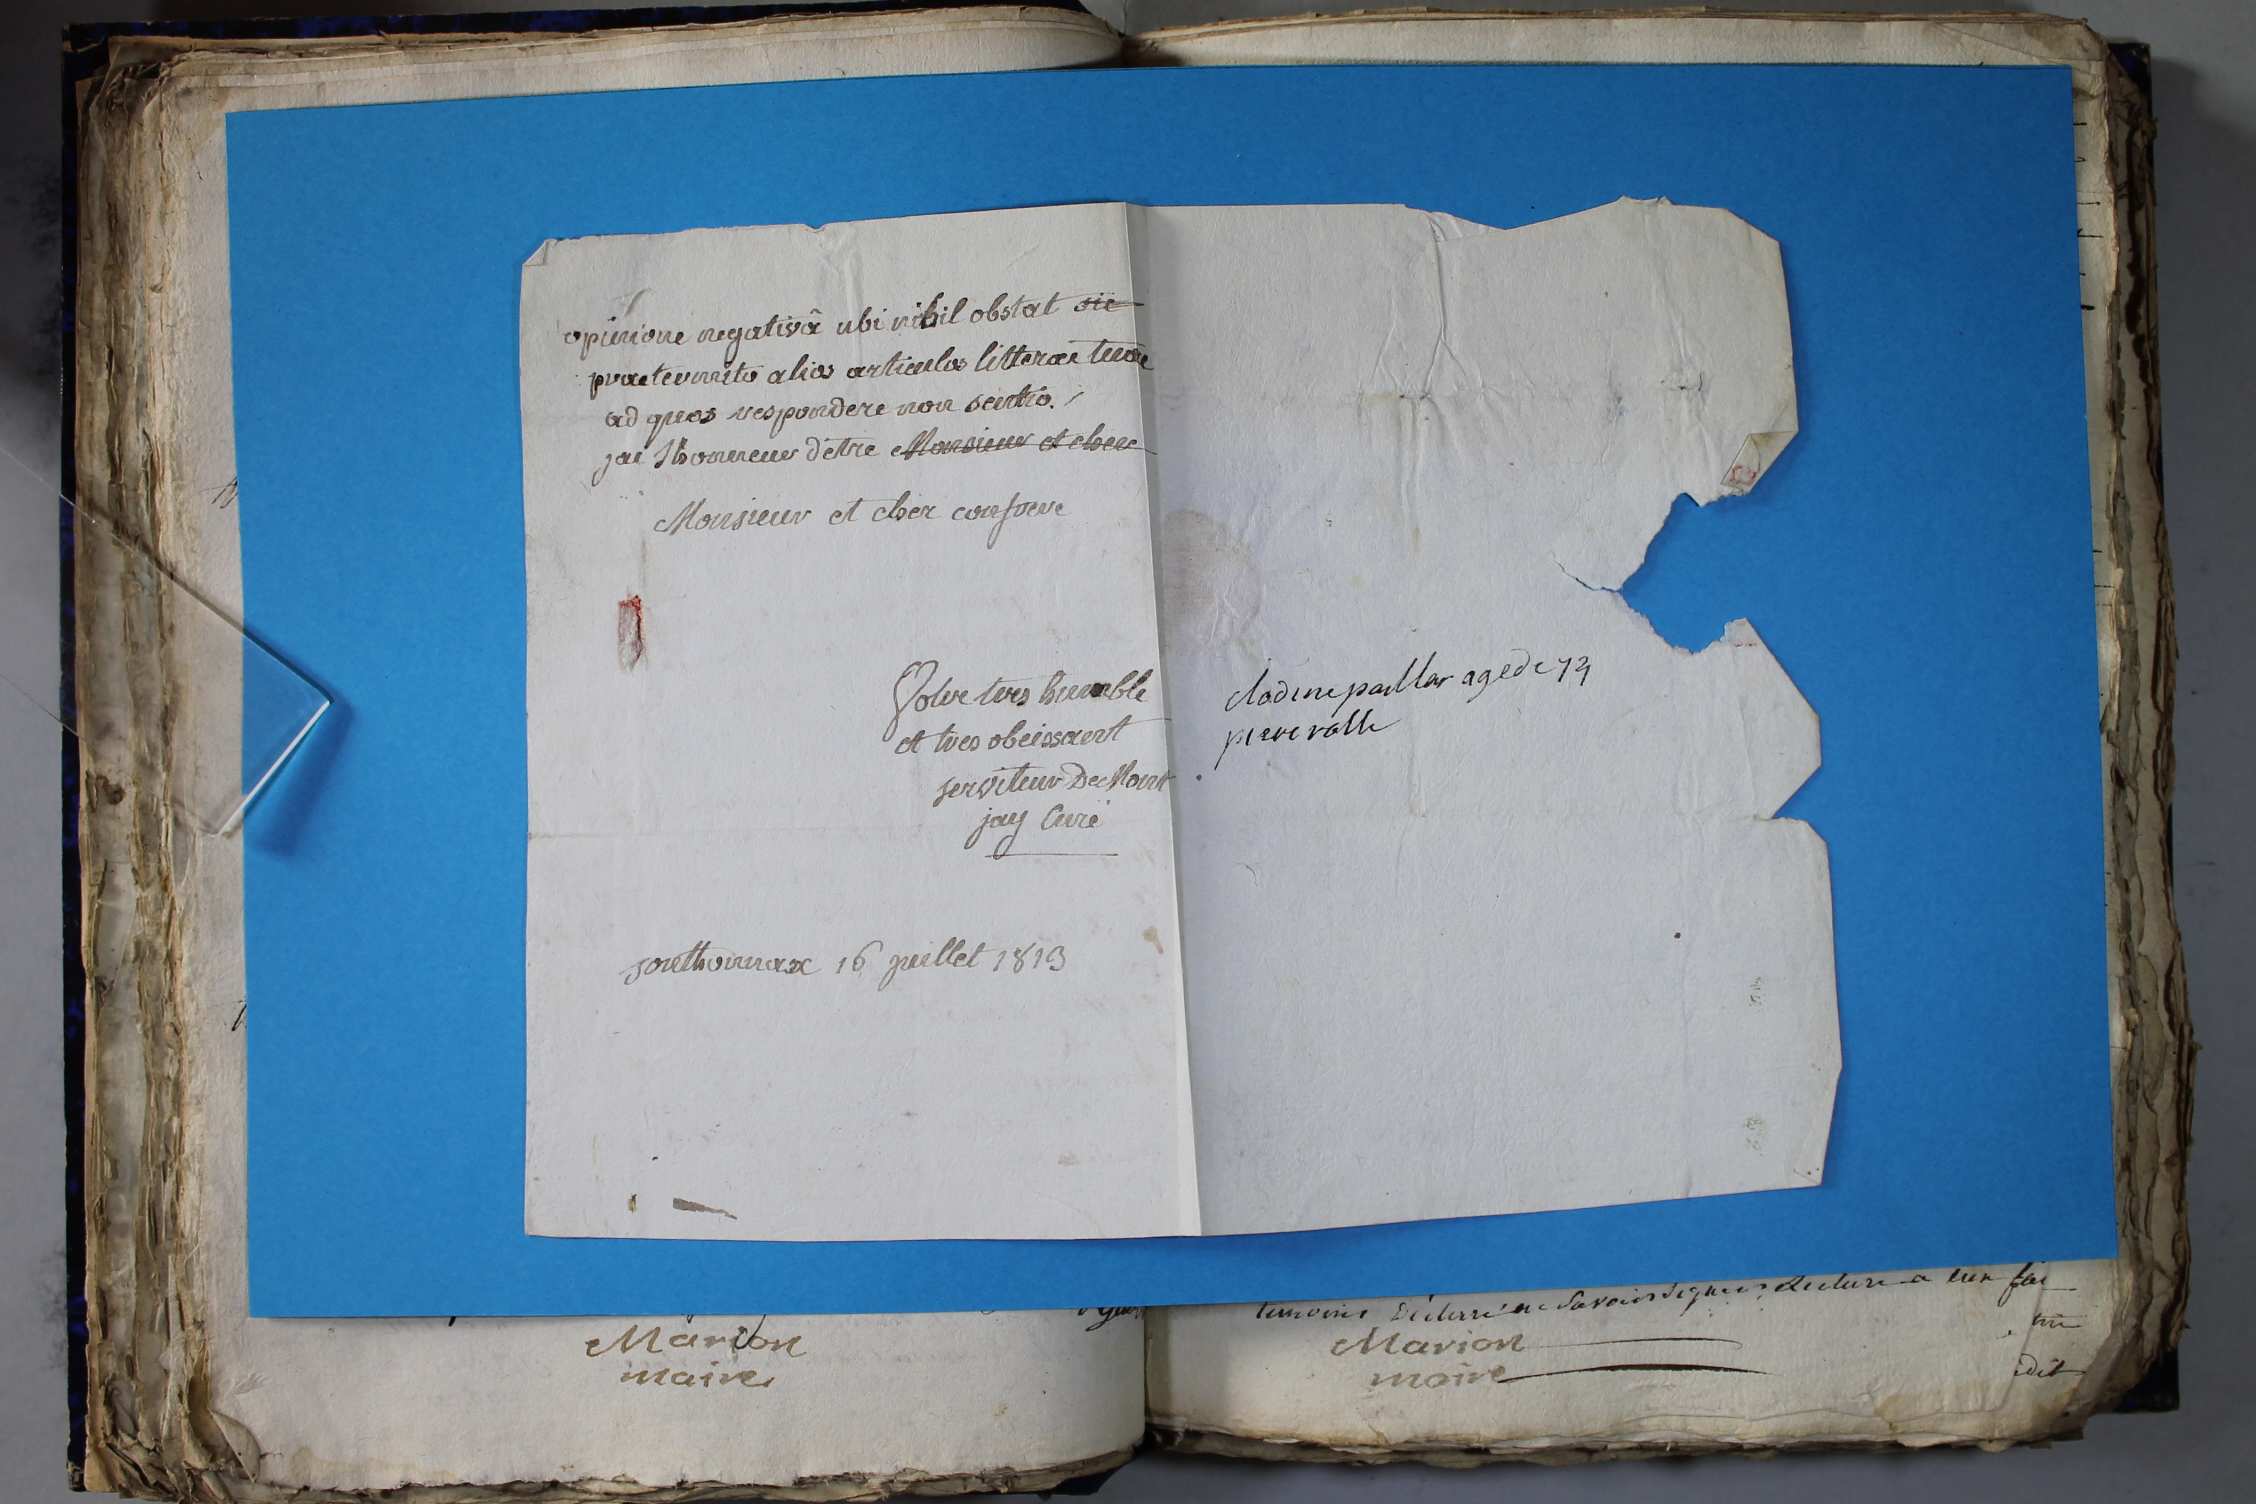 opinione negativâ ubi nihil obstat sic
praetermitto alios articulos litterae tuae
ad quos respondere non scintio.
jai lhonneur d'être Monsieur et cher
Monsieur et cher confrere
Votre tres humble
et tres obeissant
serviteur De Mont
jay Curé
sonthonnax 16 juillet 1813
cladine pallar agede 73
piere rolle
Marion
maire
temoins Déclarré ne Savoir Signer, Lecture a eux fai
Marion
maire